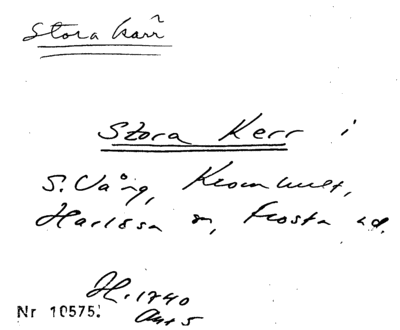 Stora kärr
Stora Kerr i
S. Vång, Kromhult,
Harlösa sn, Frosta hd.
H. 1740
Nr 10575.
Akt 5